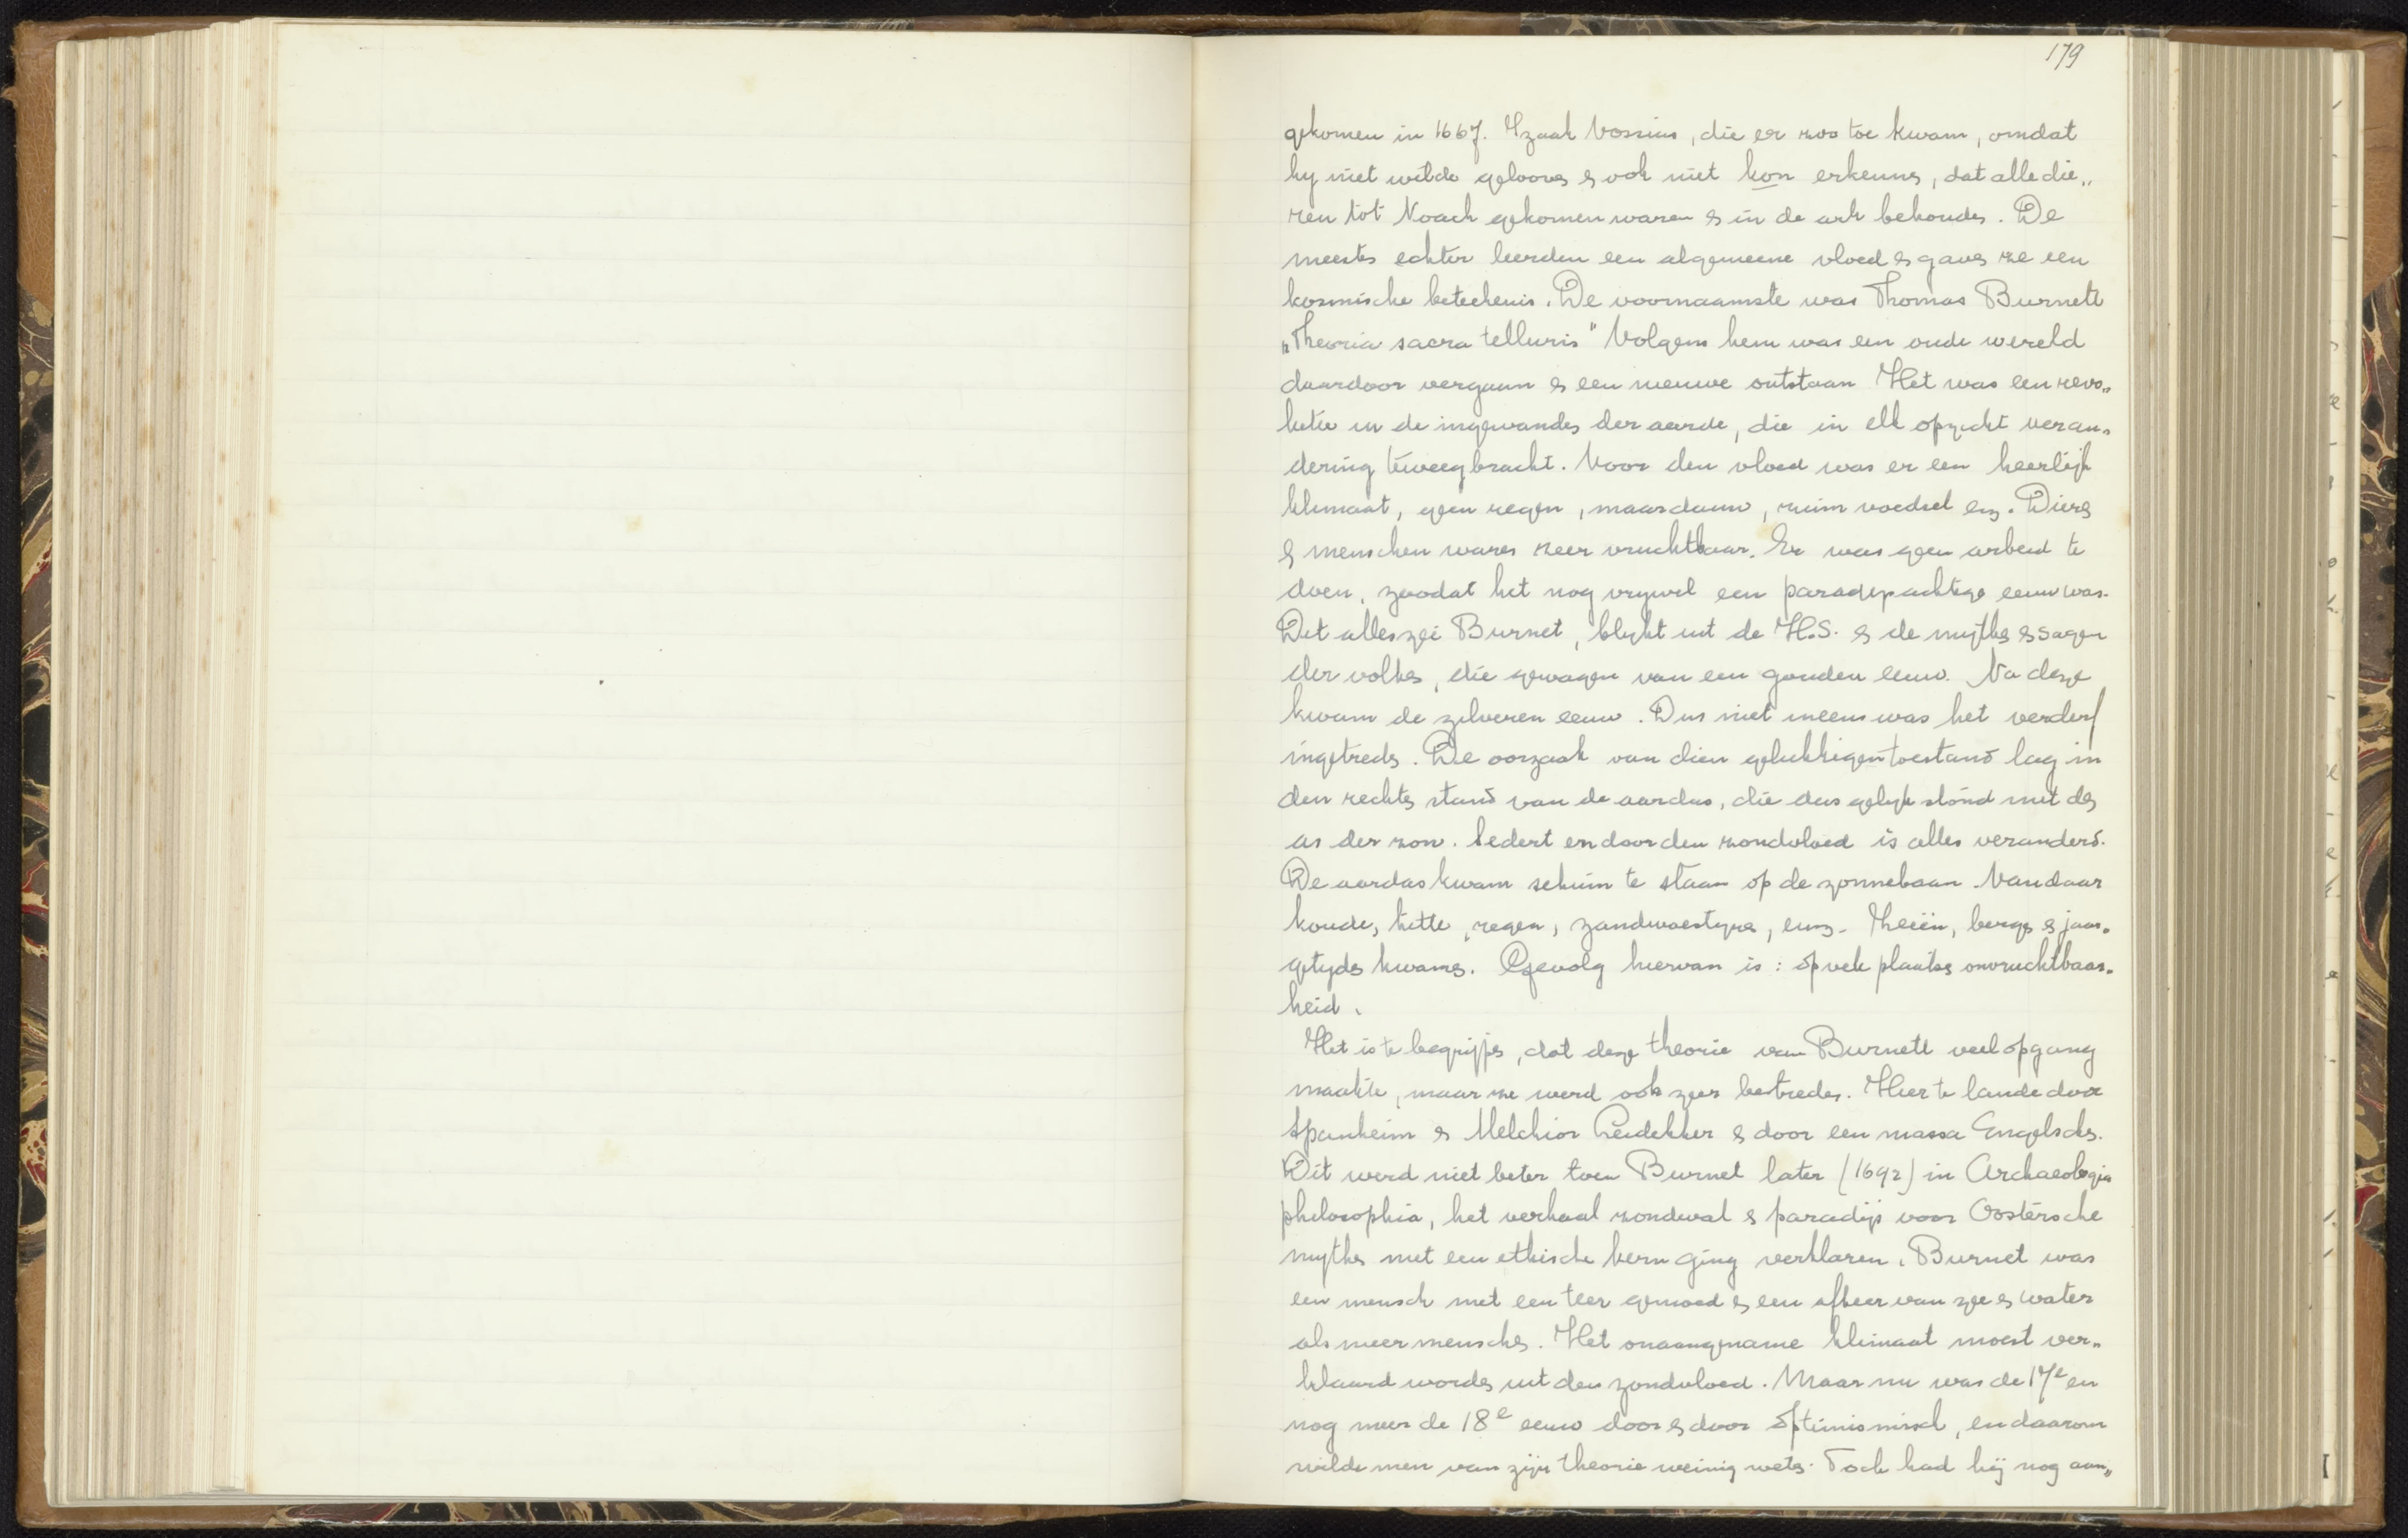 179
gekomen in 1667. Izaak Vossius, die er zoo toe kwam, omdat
hy niet wilde gelooven & ook niet kon erkennen, dat alle die„
ren tot Noach gekomen waren & in de ark behouden. De
meesten echter leerden een algemeene vloed & gaven ze een
kosmische beteekenis. De voornaamste was Thomas Burnett
„Theoria sacra telluris" Volgens hem was een oude wereld
daardoor vergaan & een nieuwe ontstaan Het was een revo„
lutie in de ingewanden der aarde, die in elk opzicht veran„
dering teweegbracht. Voor den vloed was er een heerlijk
klimaat, geen regen, maar dauw, ruim voedsel enz. Dieren
& menschen waren zeer vruchtbaar. Er was geen arbeid te
doen, zoodat het nog vrywel een paradysachtige eeuw was.
Dit alles zei Burnet, blykt uit de H.S. & de mythen & sagen
der volken, die gewagen van een gouden eeuw. Na deze
kwam de zilveren eeuw. Dus niet ineens was het verderf
ingetreden. De oorzaak van dien gelukkigen toestand lag in
den rechten stand van de aardas, die dus gelyk stond met den
as der zon. Sedert en door den zondvloed is alles veranderd.
De aardas kwam schuin te staan op de zonnebaan. Vandaar
koude, hitte, regen, zandwoestynen, enz. Zeeën, bergen & jaar„
getyden kwamen. Gevolg hiervan is: op vele plaatsen onvruchtbaar„
heid.
Het is te begrijpen, dat deze theorie van Burnett veel opgang
maakte, maar ze werd ook zeer bestreden. Hier te lande door
Spanheim & Melchior Leidekker & door een massa Engelschen.
Dit werd niet beter toen Burnet later (1692) in Archaeologia
philosophia, het verhaal zondeval & paradijs voor Oostersche
mythen met een ethische kern ging verklaren. Burnet was
een mensch met een teer gemoed & een afkeer van zee & water
als meer menschen. Het onaangename klimaat moest ver„
klaard worden uit den zondvloed. Maar nu was de 17e en
nog meer de 18e eeuw door & door optimismisch, en daarom
wilde men van zijn theorie weinig weten. Toch had hij nog aan„